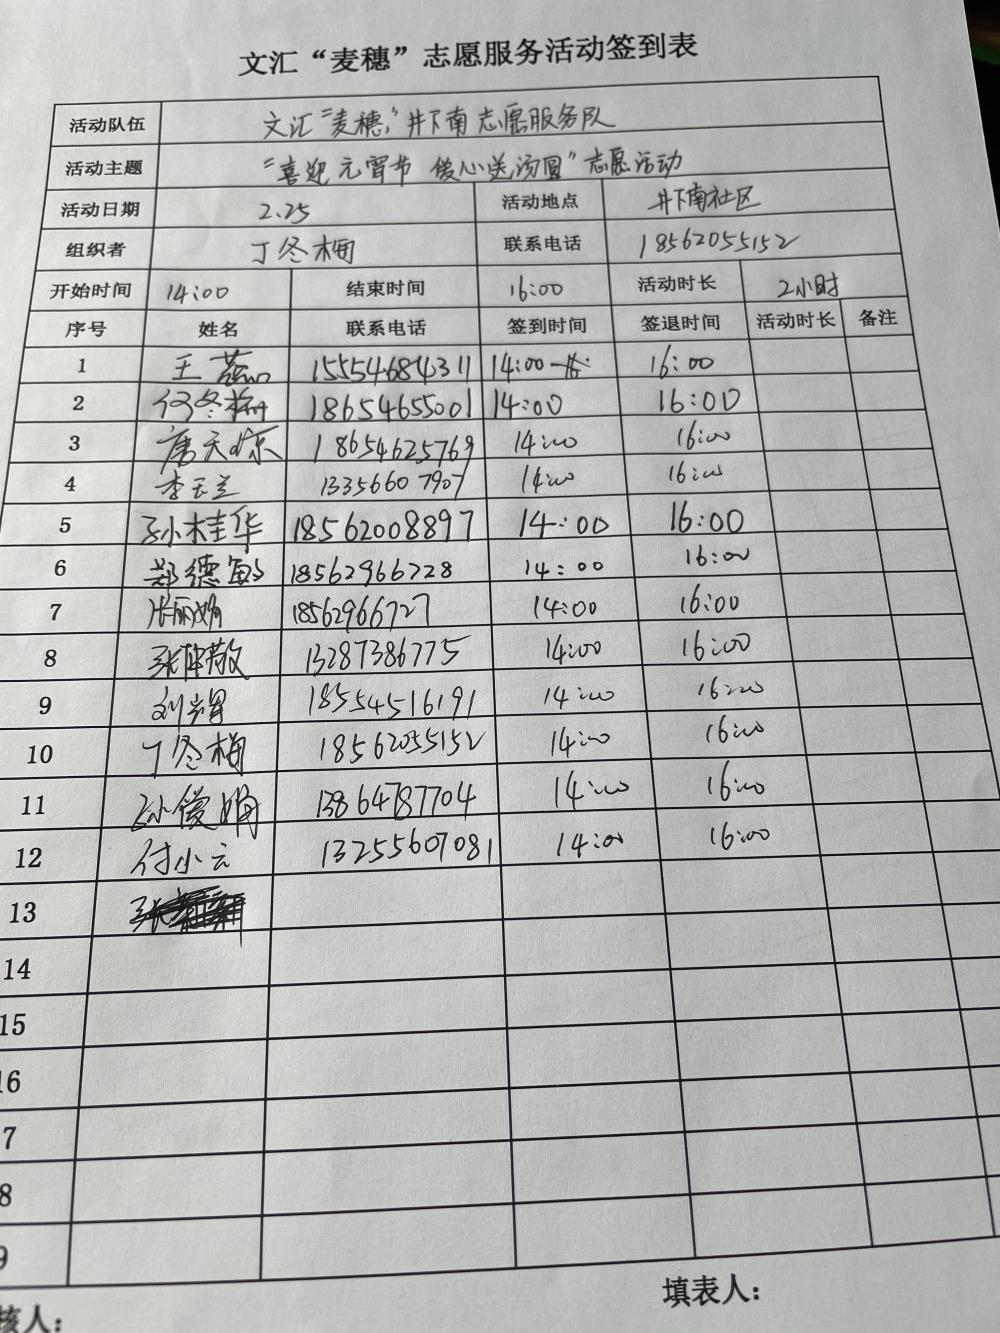 文汇“麦穗”志愿服务活动签到表
活动队伍 文汇“麦穗”井下南志愿服务队
活动主题 “喜迎元宵节 暖心送汤圆”志愿活动
活动日期 2.25 活动地点 井下南社区
组织者 丁冬梅 联系电话 18562055152
开始时间 14:00 结束时间 16:00 活动时长 2小时
序号 姓名 联系电话 签到时间 签退时间 活动时长 备注
1 王 15554684311 14:00 16:00
2 何冬梅 18654655001 14:00 16:00
3 唐天 18654625769 14:00 16:00
4 李玉兰 13356607907 14:00 16:00
5 孙桂华 18562008897 14:00 16:00
6 郑德敏 18562966728 14:00 16:00
7 张丽娟 18562966727 14:00 16:00
8 张仲敬 13287386775 14:00 16:00
9 刘 18554516191 14:00 16:00
10 丁冬梅 18562055152 14:00 16:00
11 孙俊娟 13864787704 14:00 16:00
12 付小云 13255607081 14:00 16:00
13
14
15
16
7
8
9
核人：
填表人：